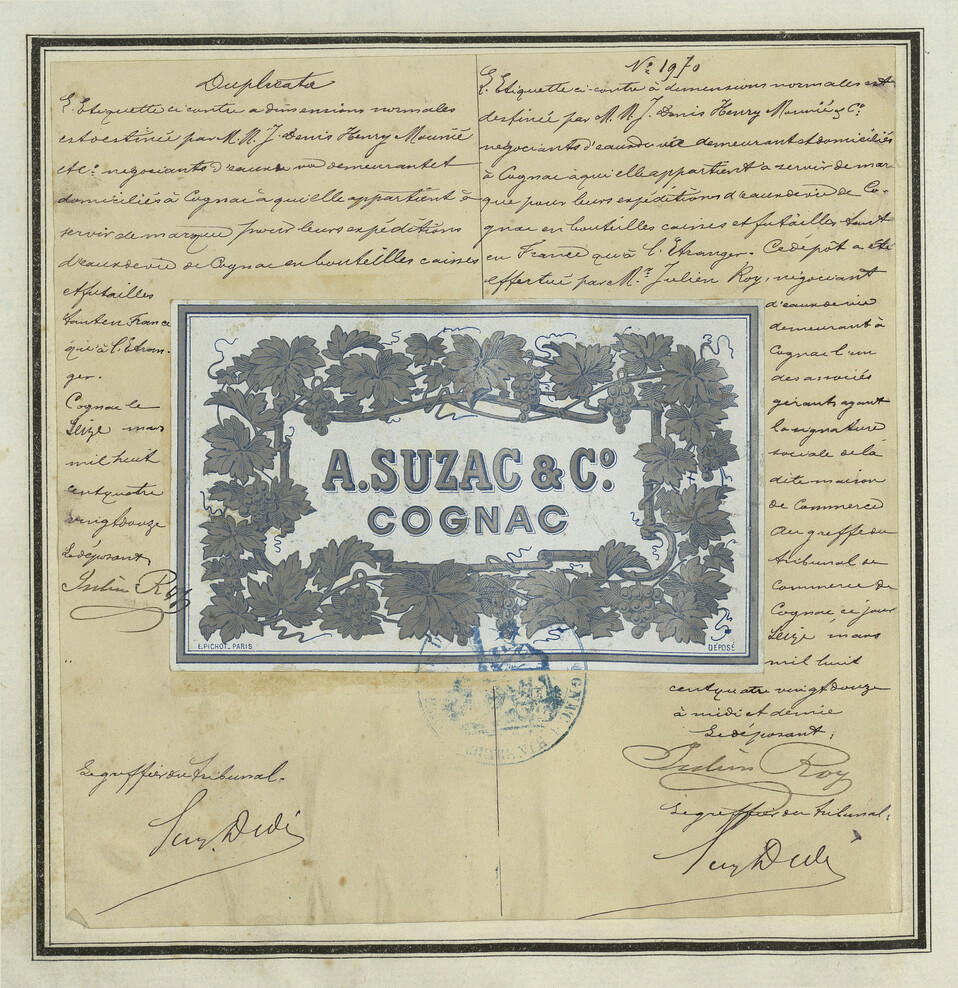 Duplicata
L'Etiquette ci contre a dimensions normales
est destinée par M.M. J. Denis Henry Mounié
et Cie négociants d'eaux de vie demeurant et
domiciliés à Cognac à qui elle appartient à
servir de marque pour leurs expéditions
d'eaux de vie de Cognac en bouteilles caisses
et futailles
tant en France
qu'à l'Etran-
ger.
Cognac le
Seize mars
mil huit
cent quatre
vingt douze
Le déposant,
Julien Roy
Le greffier du tribunal.
No 1970
L'Etiquette ci-contre à dimensions normales est
destinée par M.M. J. Denis Henry Mounié & Co.
négociants d'eaux de vie demeurant et domiciliés
à Cognac à qui elle appartient a servir de mar-
que pour leurs expéditions d'eaux de vie de Co-
gnac en bouteilles caisses et futailles tant
en France qu'à l'Etranger. Ce dépôt a été
effectué par Mr. Julien Roy, négociant
d'eaux de vie
demeurant à
Cognac l'un
des associés
gérants ayant
la signature
sociale de la
dite maison
de Commerce
Au greffe du
tribunal de
Commerce de
Cognac ce jour
Seize mars
mil huit
cent quatre vingt douze
à midi et demie
Le déposant,
Julien Roy
Le greffier du tribunal,
A. SUZAC & Co.
COGNAC
E. PICHOT_PARIS
DÉPOSÉ